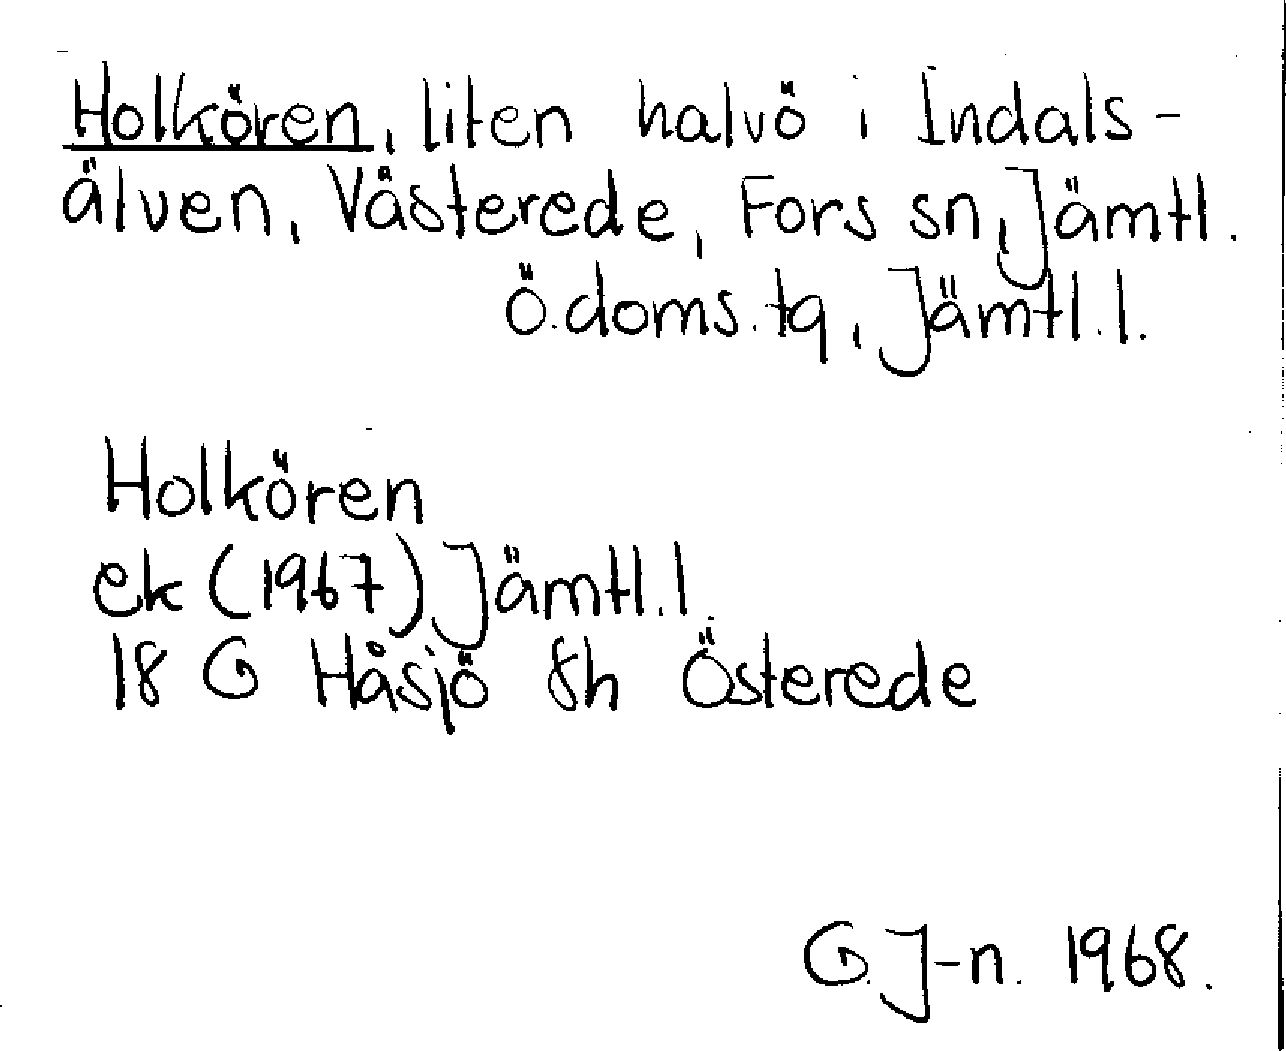 Holkören, liten halvö i Indals-
älven, Västerede, Fors sn, Jämtl.
Ö.doms.tg, Jämtl.l.
Holkören
ek (1967) Jämtl.l.
18 G Håsjö 8h Österede
G. J-n. 1968.